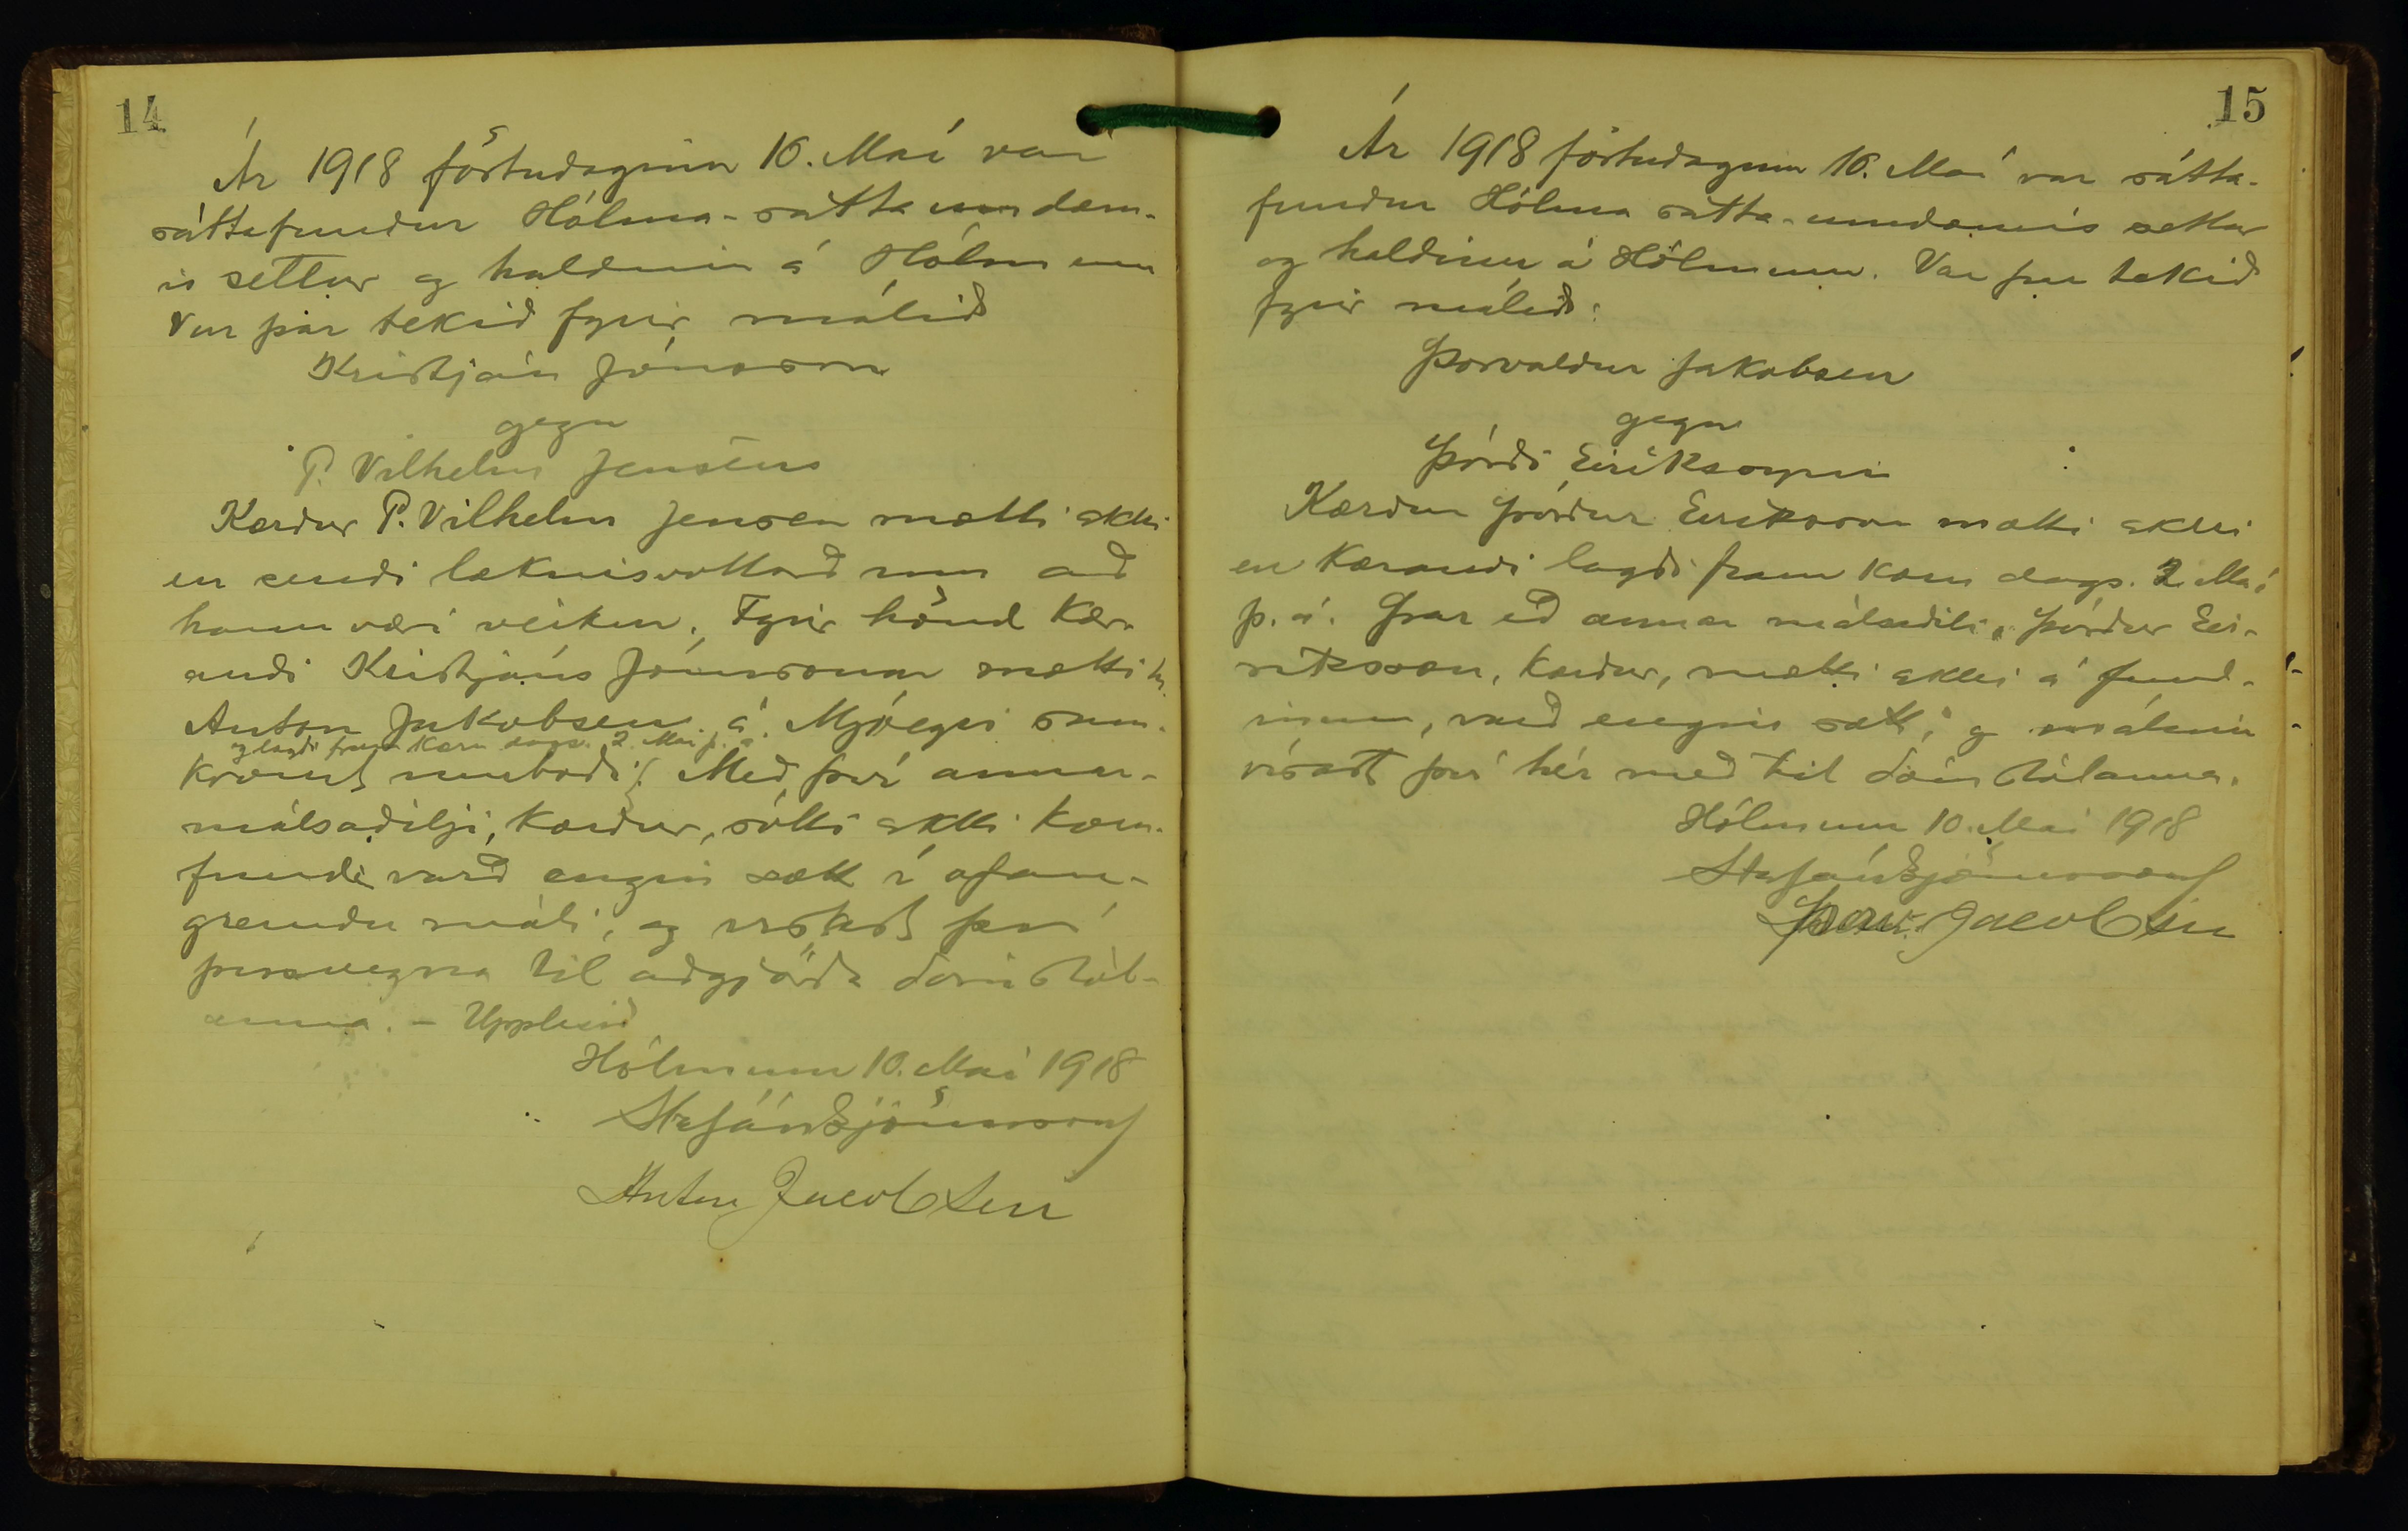 14
Ár 1918 föstudaginn 10. Maí var
sáttafundur Hólma-sátta umdæm-
is settur og haldinn á Hólmum
Var þar tekið fyrir málið
Kristján Jónsson
gegn
P. Vilhelm Jensens
Kærdur P. Vilhelm Jensen mætti ekki
en sendi læknisvottord um ad
hann væri veikur. Fyrir hönd kær-
andi Kristjáns Jónssonar mætti hr.
Anton Jakobsen á Mjóeyri sam-
og lagdi fram kæru dags. 2. Maí þ. á.
kvæmt umbodi. Med því annar-
málsadilji, kærdur, sótti ekki kæru-
fundi vard engin sætt í ofan-
greindu máli, og vísast því
þessvegna til adgjörda dómstól-
anna. – Upplesid
Hólmum 10. Maí 1918
Stefán Björnsson
Anton Jacobsen
15
Ár 1918 föstudaginn 10. Maí var sátta-
fundur Hólma sátta-umdæmis settur
og haldinn á Hólmum. Var þar tekid
fyrir málid:
Þorvaldur Jakobsen
gegn
Þórdi Eiríkssyni
Kærdur Þórdur Eiríksson mætti ekki
en kærandi lagdi fram kæru dags. 2 Maí
þ. á. Þar ed annar málsadili, Þórdur Eir-
iksson, kærdur, mætti ekki á fund-
inum, vard engin sætt, og málinu
vísast því hér med til dómstólanna.
Hólmum 10. Maí 1918
Stefán Björnsson
Þorv. Jacobsen